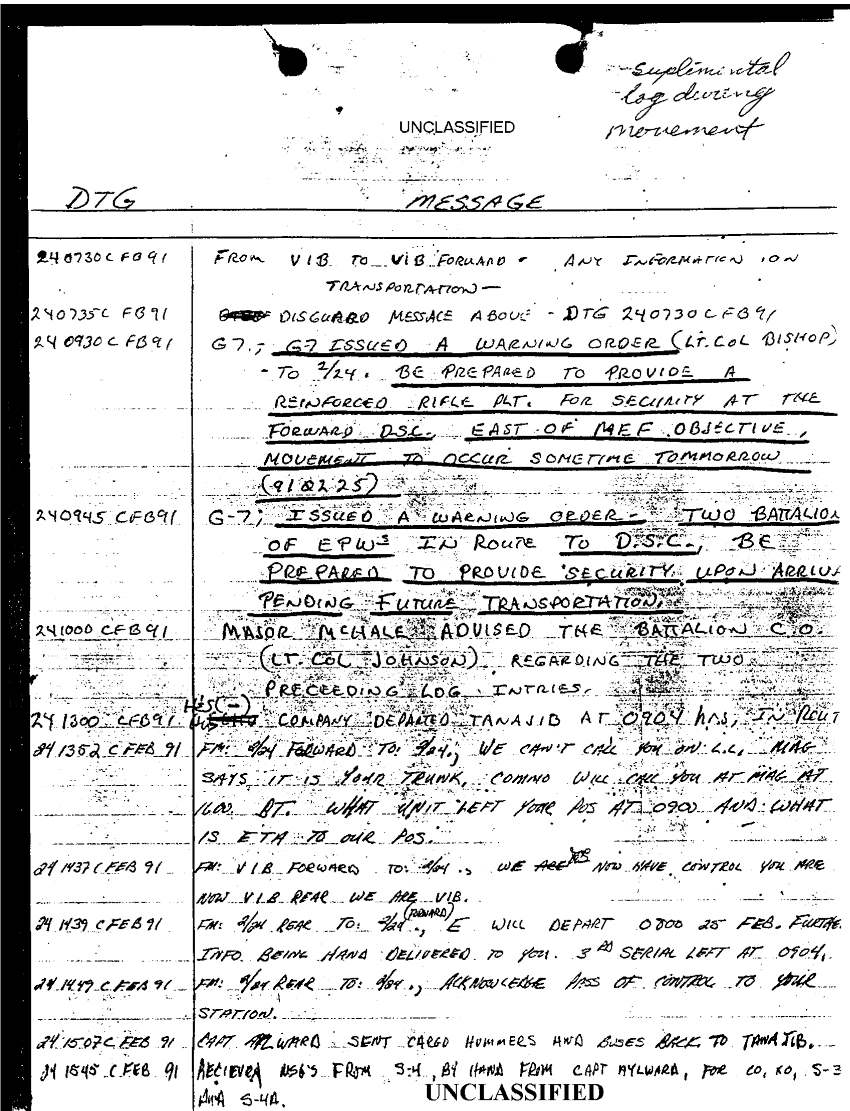 suplimental
log during
movement
UNCLASSIFIED
DTG MESSAGE
240730C FB91 FROM VIB TO VIB FORWARD - ANY INFORMATION ION
TRANSPORTATION —
240735C FB91 DISGUARD MESSAGE ABOVE - DTG 240730C FB91
240930C FB91 G7.; G7 ISSUED A WARNING ORDER (LT. COL BISHOP)
- TO 2/24. BE PREPARED TO PROVIDE A
REINFORCED RIFLE PLT. FOR SECURITY AT THE
FORWARD D.S.C., EAST OF MEF OBJECTIVE,
MOVEMENT TO OCCUR SOMETIME TOMMORROW
(910225)
240945 CFB91 G-7; ISSUED A WARNING ORDER - TWO BATTALION
OF EPWs IN ROUTE TO D.S.C., BE
PREPARED TO PROVIDE SECURITY UPON ARRIVE
PENDING FUTURE TRANSPORTATION.
241000 CFB91 MAJOR MCHALE ADVISED THE BATTALION C.O.
(LT. COL JOHNSON) REGARDING THE TWO
PRECEEDING LOG INTRIES.
H&S(-)
241300 CFB91 COMPANY DEPARTED TANAJIB AT 0904 hrs, IN ROUT
241352 C FEB 91 FM: 2/24 FORWARD TO: 2/24., WE CAN'T CALL YOU ON L.L. MAG
SAYS IT IS YOUR TRUNK, COMMO WILL CALL YOU AT MAG AT
1600. BT. WHAT UNIT LEFT YOUR POS AT 0900 AND WHAT
IS ETA TO OUR POS.
241437 C FEB 91 FM: VIB FORWARD TO: 2/24., WE ARE NOW HAVE CONTROL YOU ARE
NOW VIB REAR WE ARE VIB.
241439 C FEB 91 FM: 2/24 REAR TO: 2/24 (FORWARD)., E WILL DEPART 0800 25 FEB. FURTHE
INFO. BEING HAND DELIVERED TO YOU. 3RD SERIAL LEFT AT 0904.
241449 C FEB 91 FM: 2/24 REAR TO: 2/24., ACKNOWLEDGE PASS OF CONTROL TO YOUR
STATION.
241507C FEB 91 CAPT AYLWARD SENT CARGO HUMMERS AND BUSES BACK TO TANAJIB.
241545 C FEB 91 RECIEVED MSG'S FROM S-4, BY HAND FROM CAPT AYLWARD, FOR CO, XO, S-3
AND S-4A.
UNCLASSIFIED